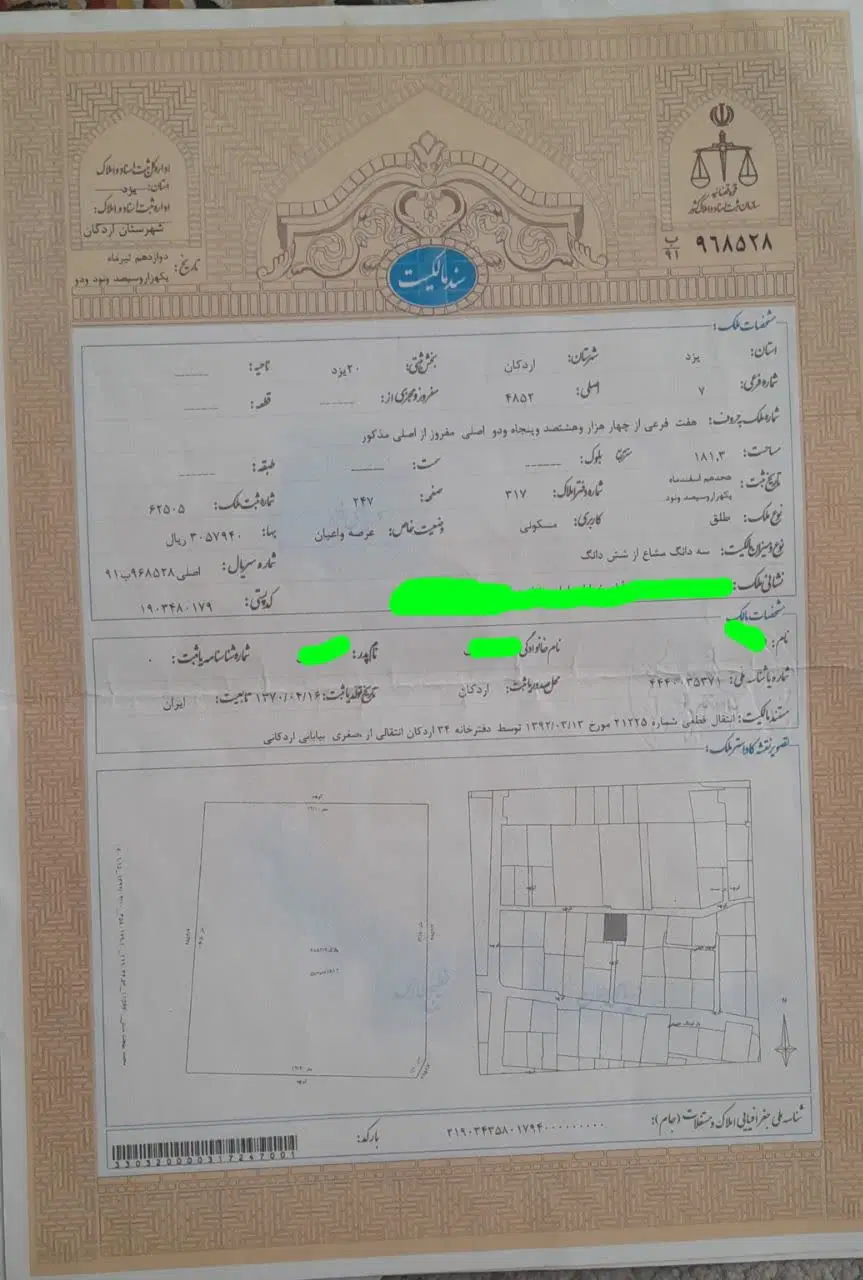 اداره کل ثبت اسناد و املاک
استان: یزد
اداره ثبت اسناد و املاک:
شهرستان اردکان
تاریخ: دوازدهم تیرماه
یکهزاروسیصد ونود ودو
قوه قضائیه
سازمان ثبت اسناد و املاک کشور
۹۶۸۵۲۸ ب ۹۱
سند مالکیت
مشخصات ملک:
استان: یزد شهرستان: اردکان بخش ثبتی: ۲۰یزد ناحیه:
شماره فرعی: ۷ اصلی: ۴۸۵۲ مفروز و مجزی از: قطعه:
شماره ملک به حروف: هفت فرعی از چهار هزار وهشتصد وپنجاه ودو اصلی مفروز از اصلی مذکور
مساحت: ۱۸۱.۳ مترمربع بلوک: سمت: طبقه:
تاریخ ثبت: هجدهم اسفندماه یکهزاروسیصد ونود شماره دفتر املاک: ۳۱۷ صفحه: ۲۴۷ شماره ثبت ملک: ۶۲۵۰۵
نوع ملک: طلق کاربری: مسکونی وضعیت خاص: عرصه واعیان بها: ۳۰۵۷۹۴۰ ریال
نوع و میزان مالکیت: سه دانگ مشاع از شش دانگ شماره سریال: اصلی۹۶۸۵۲۸ب۹۱
نشانی ملک: کدپستی: ۱۹۰۳۴۸۰۱۷۹
مشخصات مالک
نام: نام خانوادگی نام پدر: شماره شناسنامه یا ثبت: ۰
شماره یا شناسه ملی: محل صدور یا ثبت: اردکان تاریخ تولد یا ثبت: ۱۳۷۰/۰۴/۱۶ تابعیت: ایران
مستند مالکیت: انتقال قطعی شماره ۲۱۲۲۵ مورخ ۱۳۹۲/۰۳/۱۳ توسط دفترخانه ۳۴ اردکان انتقالی از ،صغری بیابانی اردکانی
تصویر نقشه کاداستر ملک:
کوچه
کوچه
N
شناسه ملی جغرافیایی املاک و مستغلات (جام): ۲۱۹۰۳۴۳۵۸۰۱۷۹۴۰۰۰۰۰۰۰۰۰
بارکد:
3303200003172470 01